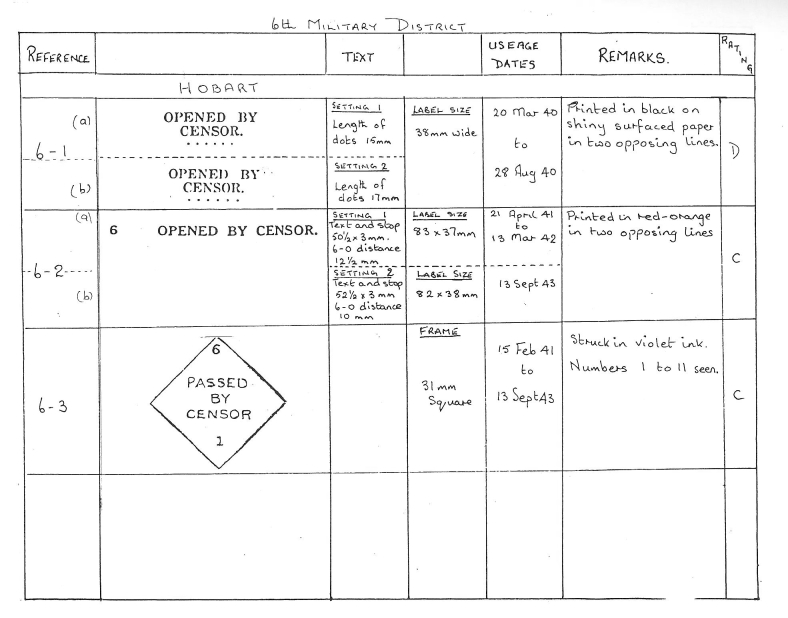 6th MILITARY DISTRICT
REFERENCE
TEXT
USEAGE
DATES
REMARKS.
RATING
HOBART
6-1
(a)
OPENED BY
CENSOR.
......
SETTING 1
Length of
dots 15mm
LABEL SIZE
38mm wide
20 Mar 40
to
28 Aug 40
Printed in black on
shiny surfaced paper
in two opposing lines.
D
(b)
OPENED BY
CENSOR.
......
SETTING 2
Length of
dots 17mm
6-2
(a)
6 OPENED BY CENSOR.
SETTING 1
Text and stop
50½ x 3mm.
6-0 distance
12½ mm
LABEL SIZE
83 x 37mm
21 April 41
to
13 Mar 42
Printed in red-orange
in two opposing lines
C
(b)
SETTING 2
Text and stop
52½ x 3 mm
6-0 distance
10 mm
LABEL SIZE
82 x 38mm
13 Sept 43
6-3
6
PASSED
BY
CENSOR
1
FRAME
31 mm
Square
15 Feb 41
to
13 Sept 43
Struck in violet ink.
Numbers 1 to 11 seen.
C